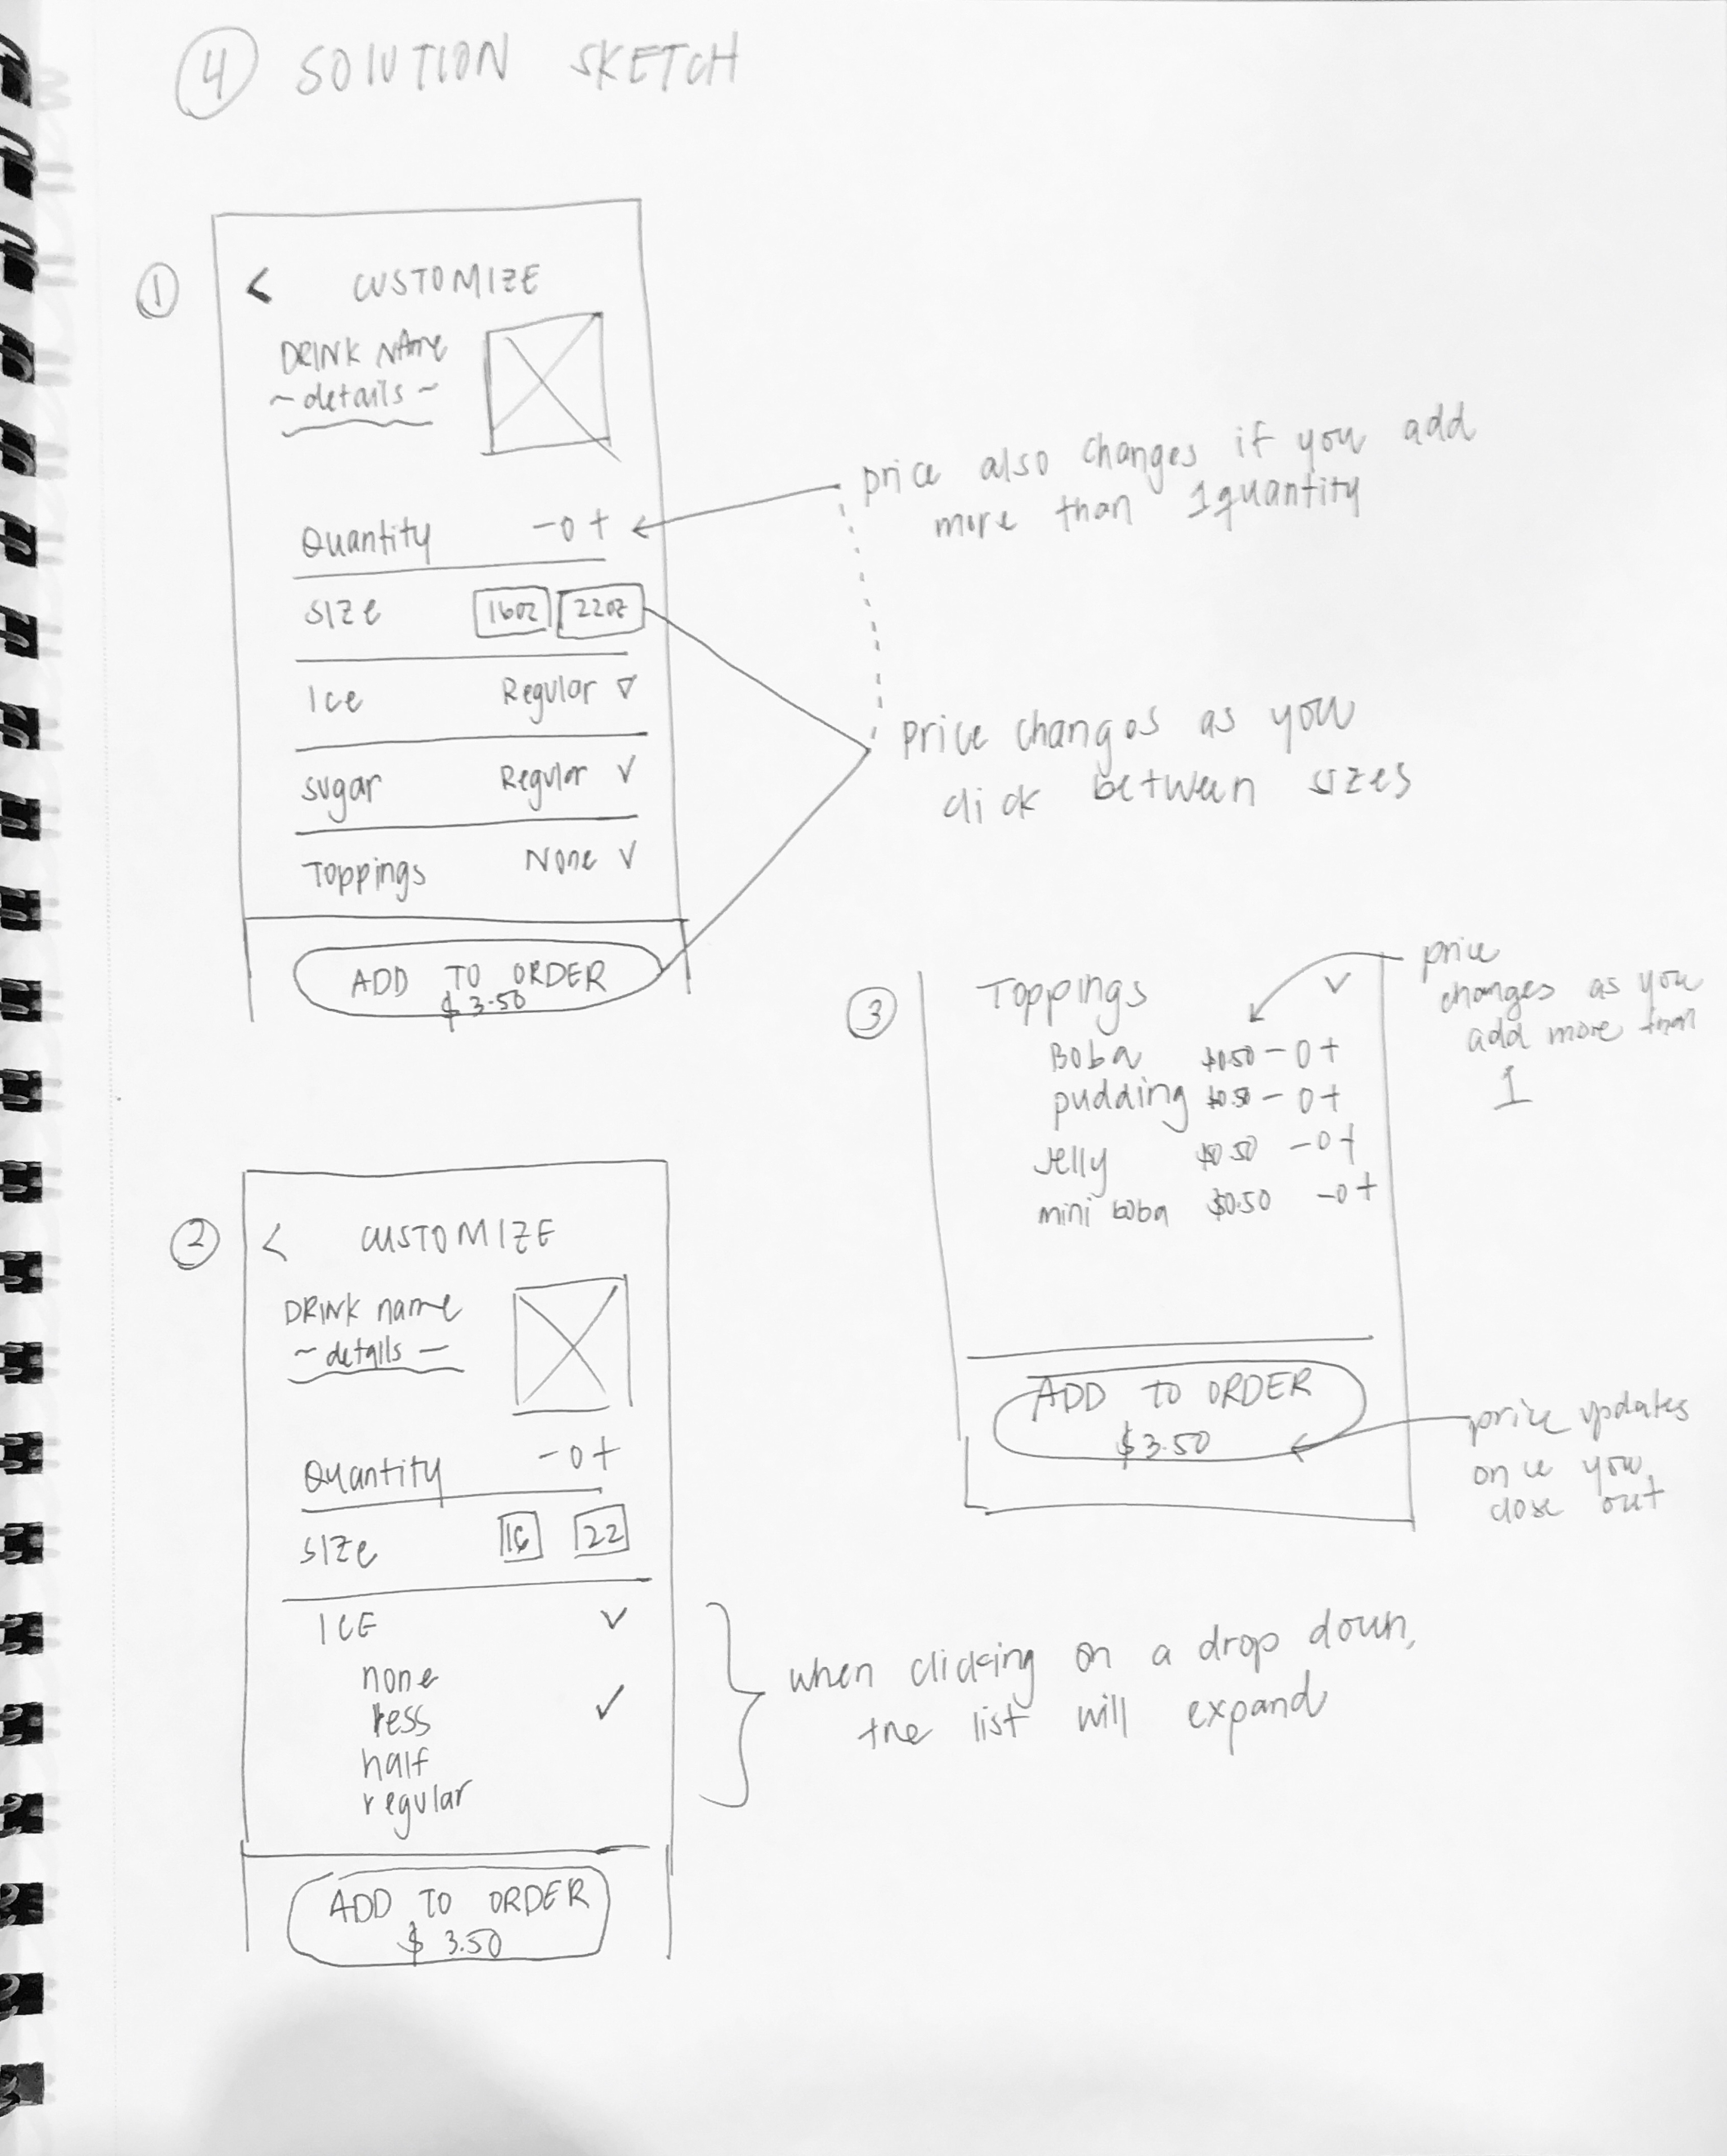 4 SOLUTION SKETCH
1
< CUSTOMIZE
DRINK NAme
~details~
Quantity -0+
size 16oz 22oz
Ice Regular
sugar Regular
Toppings None
ADD TO ORDER
$3.50
price also changes if you add
more than 1 quantity
price changes as you
click between sizes
2
< CUSTOMIZE
DRINK name
~details—
Quantity -0+
SIZe 16 22
ICE
none
less ✓
half
regular
ADD TO ORDER
$3.50
when clicking on a drop down,
the list will expand
3
Toppings
Boba $0.50 -0+
pudding $0.50 -0+
Jelly $0.50 -0+
mini boba $0.50 -0+
ADD TO ORDER
$3.50
price
changes as you
add more than
1
price updates
once you
close out